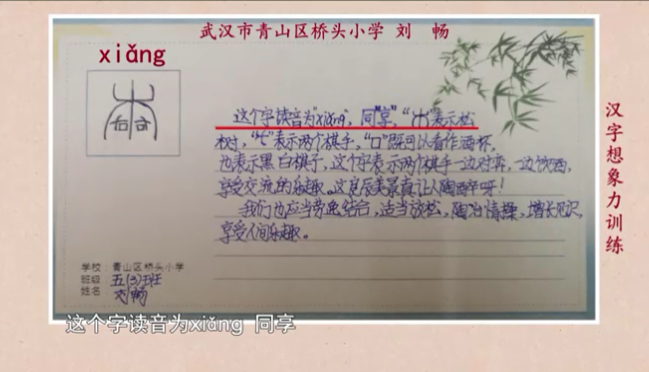 武汉市青山区桥头小学 刘 畅
xiǎng
这个字读音为“xiǎng”,同“享”,“木”表示松
树,“亻”表示两个棋手,“口”既可以看作酒杯,
也表示黑白棋子,这个字表示两个棋手一边对弈,一边饮酒,
享受交流的乐趣。这良辰美景真让人陶醉呀!
我们也应当劳逸结合,适当放松,陶冶情操,增长见识,
享受人间乐趣。
学校:青山区桥头小学
班级 五(3)班
姓名 刘畅
汉字想象力训练
这个字读音为xiǎng 同享